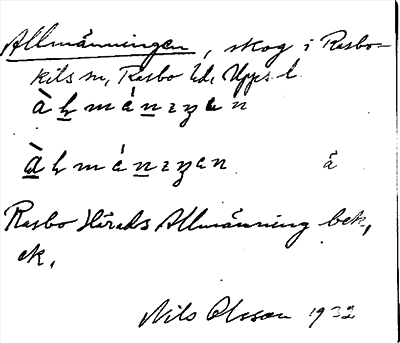 Allmänningen, skog i Rasbo-
kils sn, Rasbo hd, Upps. l.
àlmánıŋen
àlmánıŋen ä
Rasbo Härads Allmänning bek,
ek.
Nils Olsson 1932